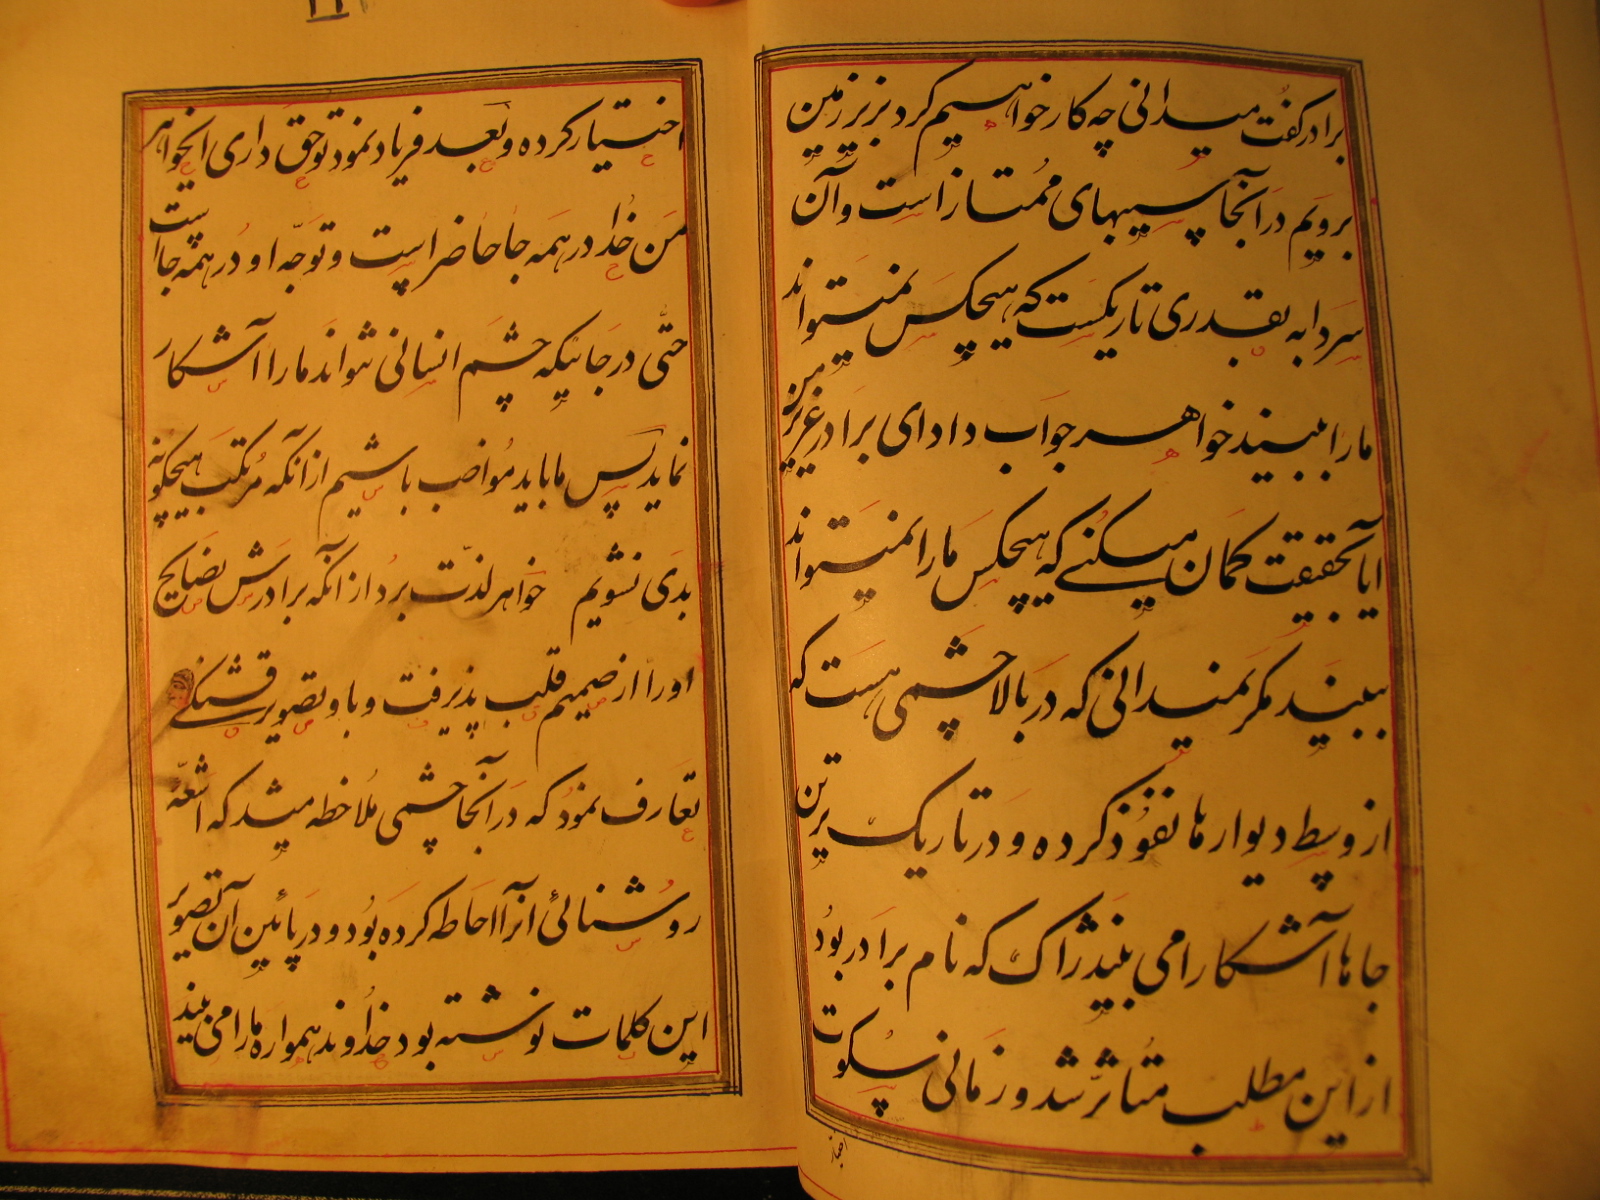 برادر گفت میدانی چه کار خواهیم کرد بزیر زمین
برویم در آنجا سیبهای ممتاز است و آن
سردابه بقدری تاریکست که هیچکس نمیتواند
ما را ببیند خواهر جواب داد ای برادر عزیز من
ایا بحقیقت گمان میکنی که هیچکس ما را نمیتواند
ببیند مگر نمیدانی که در بالا چشمی هست که
از وسط دیوارها نفوذ کرده و در تاریک ترین
جاها آشکارا می بیند ژاک که نام برادر بود
از این مطلب متاثر شد و زمانی سکوت
اختیار
اختیار کرده و بعد فریاد نمود تو حق داری ایخواهر
من خدا در همه جا حاضر است و توجه او در همه جا است
حتی در جائیکه چشم انسانی نتواند ما را آشکار
نماید پس ما باید مواضب باشیم از انکه مرتکب هیچگونه
بدی نشویم خواهر لذت برد از انکه برادرش نصایح
او را از صمیم قلب پذیرفت و باو تصویر قشنگی
تعارف نمود که در آنجا چشمی ملاخطه میشد که اشعّه
روشنائی آنرا احاطه کرده بود و در پائین آن تصویر
این کلمات نوشته بود خداوند همواره ما را می بیند